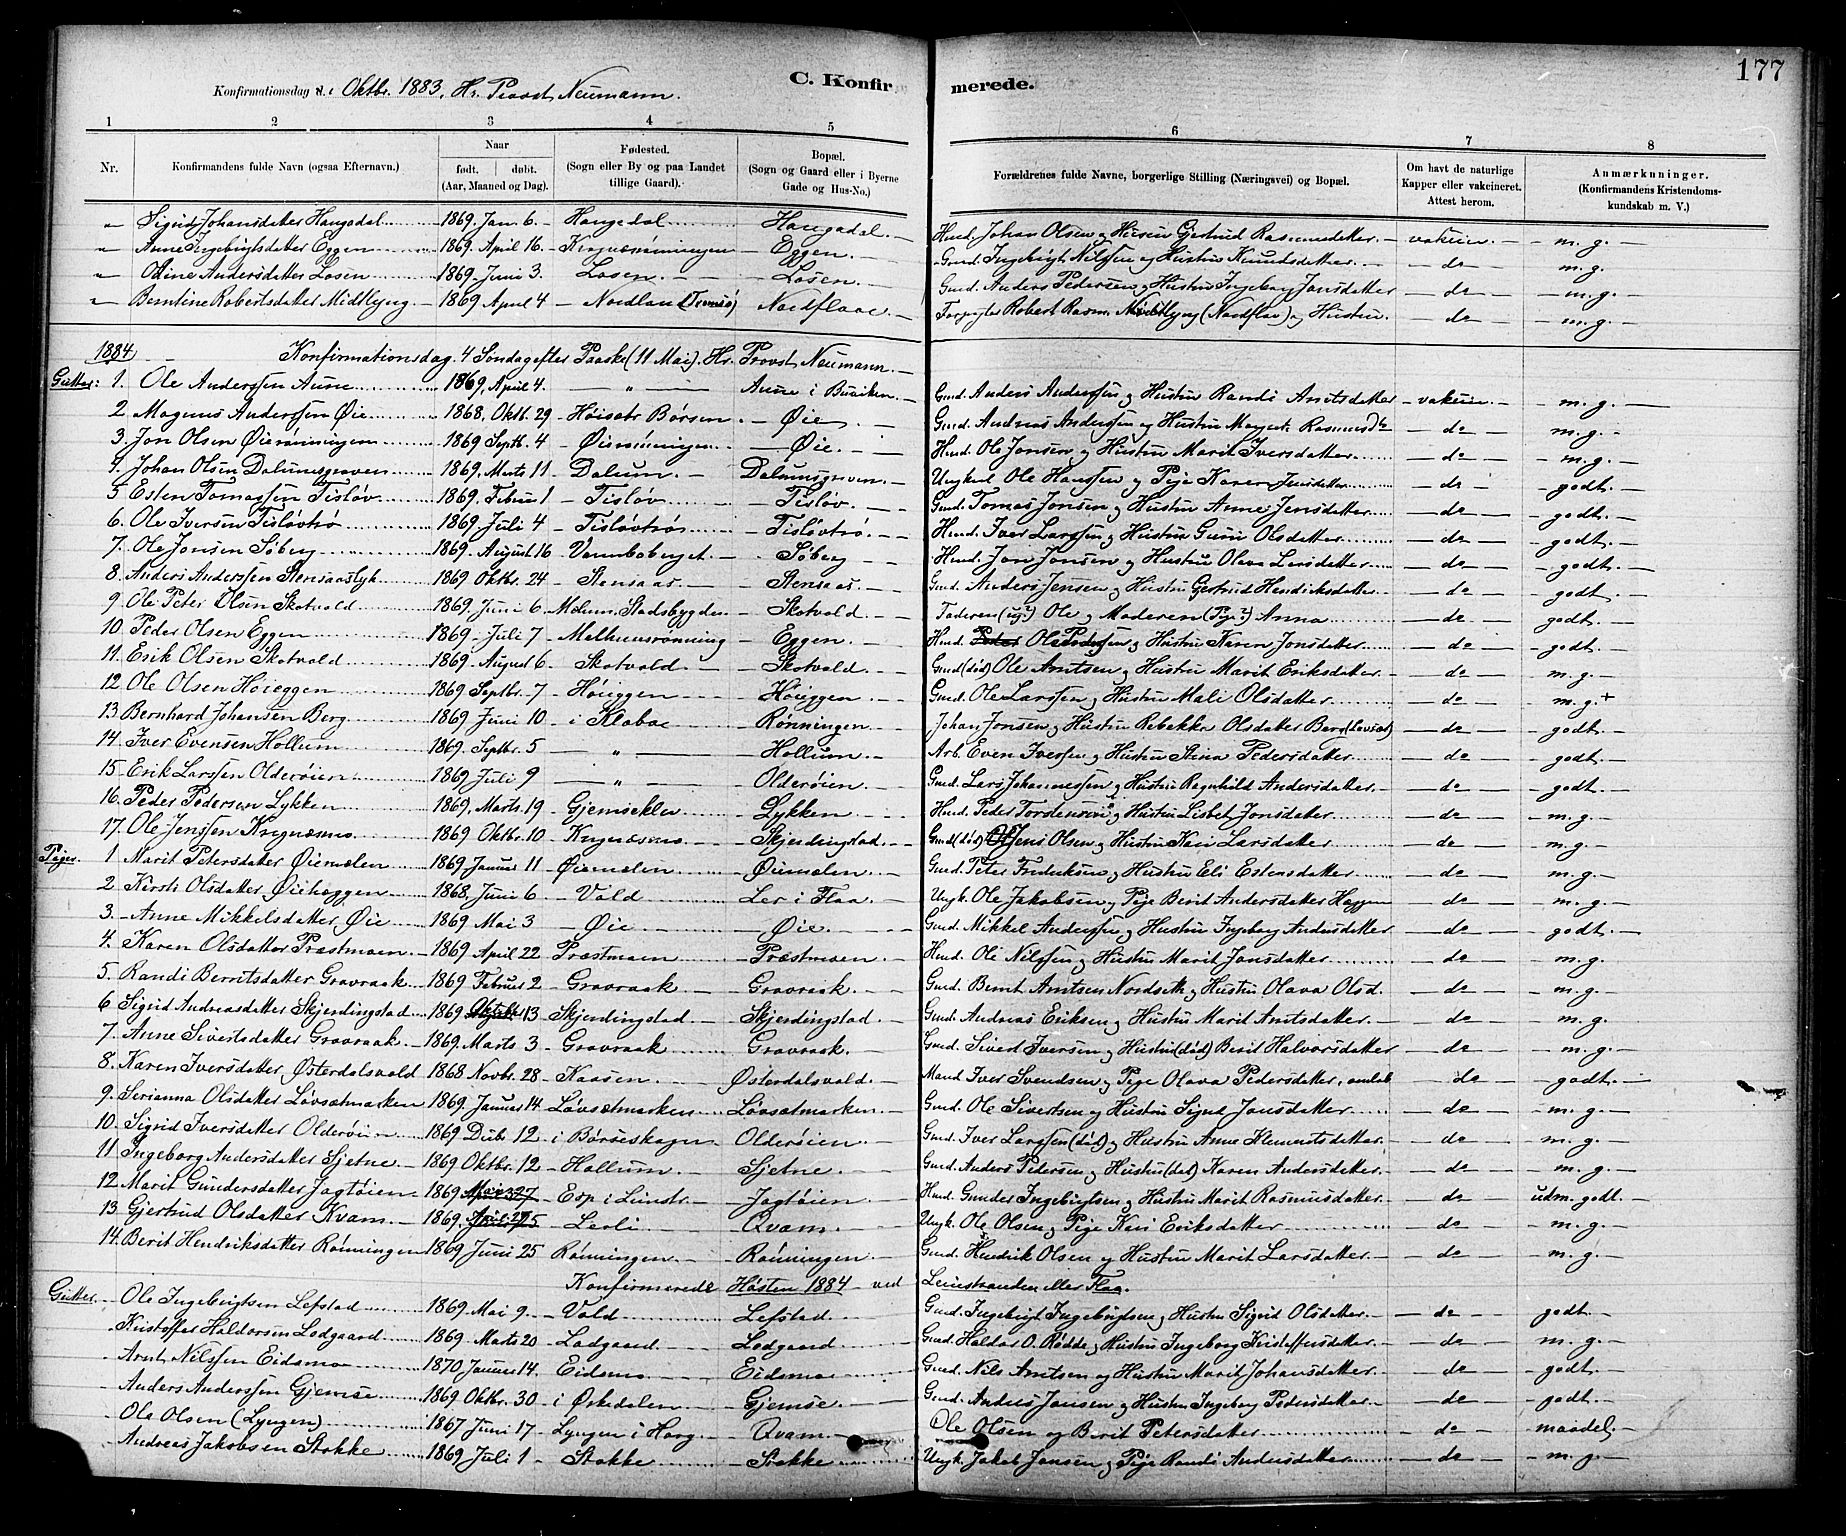 177
C. Konfirmerede.
Konfirmationsdag d. i Oktbr. 1883, Hr. Provst Neumann.
1 2 3 4 5 6 7 8
Nr. Konfirmandens fulde Navn (ogsaa Efternavn.) Naar født. døbt. (Aar, Maaned og Dag). Fødested. (Sogn eller By og paa Landet tillige Gaard). Bopæl. (Sogn og Gaard eller i Byerne Gade og Hus-No.) Forældrenes fulde Navne, borgerlige Stilling (Næringsvei) og Bopæl. Om havt de naturlige Kapper eller vakeineret. Attest herom. Anmærkninger. (Konfirmandens Kristendomskundskab m. V.)
" Sigrid Johansdatter Haugedal 1869. Jan. 6. Haugedal Haugedal. Husd. Johan Olsen og Hustru Gjertrud Rasmusdatter. vakein. m. g.
" Anne Ingebrigtsdatter Eggen 1869. April 16. Krognæsrønningen Eggen. Gmd. Ingebrigt Nilssen og Hustru Knudsdatter. do m. g.
" Odine Andersdatter Losen 1869. Juni 3. Losen. Losen. Gmd. Anders Pedersen og Hustru Ingeborg Jonsdatter do m. g.
" Berntine Robertsdatter Midtlyng 1869 April 4 Nordlan (Tromsø) Nordflaae Forpagter Robert Rasm. Midtlyng (Nordflaa) og Hustru. do m. g.
1884 Konfirmationsdag. 4 Søndag efter Paaske (11 Mai). Hr. Provst Neumann.
Gutter: 1. Ole Anderssen Aune 1869. April 4. " Aune i Buviken. Gmd. Anders Anderssen og Hustru Randi Arntsdatter vakein. m. g.
2. Magnus Anderssen Øie 1868. Oktb. 29 Høisetr Børsen. Øie Gmd. Andreas Anderssen og Hustru Margret Rasmusd. do m. g.
3. Jon Olsen Øierønningen 1869 Septb. 4 Øierønningen Øie. Husd. Ole Jonsen og Hustru Marit Iversdatter. do m. g.
4. Johan Olsen Dalumsgraven 1869. Marts 11 Dalum. Dalumsgraven. Ungkarl Ole Hanssen og Pige Karen Jensdatter do godt.
5 Esten Tomassen Tisløv 1869. Februar 1 Tisløv Tisløv. Gmd. Tomas Jonsen og Hustru Anne Jensdatter do godt.
6. Ole Iversen Tisløvtrø 1869 Juli 4 Tisløvtrø Tisløvtrø. Husd. Iver Larssen og Hustru Guru Olsdatter do godt.
7. Ole Jonsen Søberg 1869. August 16 Vambsberget. Søberg Husd. Jon Jonsen og Hustru Olava Larsdatter do godt.
8 Anders Anderssen Stensaaslyk 1869 Oktbr. 24 Stensaas. Stensaas. Gmd. Anders Jensen og Hustru Gertrud Hendriksdatter do godt
9 Ole Peter Olsen Skotvold 1869. Juni 6. Melum. Stadsbygden Skotvold Faderen (ug?) Ole og Moderen (Pige?) Anna do godt.
10. Peder Olsen Eggen 1869. Juli 7 Melhusrønning Eggen. Husd. Ole Pedersen og Hustru Karen Jonsdatter. do godt.
11. Erik Olsen Skotvold 1869. August 6. Skotvold. Skotvold. Gmd. (død) Ole Arntsen og Hustru Marit Eriksdatter. do m. g.
12 Ole Olsen Høieggen 1869 Septbr. 7 Høieggen Høieggen Gmd. Ole Larssen og Hustru Mali Olsdatter. do m. g. +
13. Bernhard Johansen Berg 1869 Juni 10 i Klæbae Rønningen Johan Jonsen og Hustru Rebekka Olsdatter Berg (Løvset) do godt
14. Iver Evensen Hollum 1869. Septbr. 5 " Hollum Arb. Even Iversen og Hustru Stina Pedersdatter do godt.
15. Erik Larssen Olderøien 1869 Juli 9 " Olderøien Gmd. Lars Johannessen og Hustru Ragnhild Andersdatter do godt
16. Peder Pedersen Lykken 1869. Marts. 19 Gjemseklev Lykken Husd. Peder Torstensen og Hustru Lisbet Jonsdatter. do m. g.
17. Ole Jenssen Krognæsmo 1869 Oktbr. 10 Krognæsmo Skjerdingstad. Gmd. (død) Jens Olsen og Hustru Kari Larsdatter do m. g.
Piger. 1 Marit Petersdatter Øiemælen 1869 Januar 11 Øiemælen Øiemælen. Gmd. Peter Frederiksen og Hustru Eli Estensdatter. do m. g.
2 Kirsti Olsdatter Øiehæggen 1868. Juni 6. Vold Ler i Flaa Ungk. Ole Jakobsen og Pige Berit Andersdatter Hæggen do m. g.
3. Anne Mikkelsdatter Øie 1869 Mai 3 Øie Øie. Gmd. Mikkel Anderssen og Hustru Ingeborg Andersdatter do godt.
4. Karen Olsdatter Præstmoen 1869 April 22 Præstmoen Præstmoen. Husd. Ole Nilssen og Hustru Marit Jonsdatter. do m. g.
5. Randi Berntsdatter Gravraak 1869 Februar 2 Gravraak Gravraak. Gmd. Bernt Arntsen Nordseth og Hustru Olava Olsd. do m. g.
6 Sigrid Andreasdatter Skjerdingstad 1869 Oktober 13 Skjerdingstad. Skjerdingstad. Gmd. Andreas Eriksen og Hustru Marit Arntsdatter. do m. g.
7. Anne Sivertsdatter Gravraak. 1869. Marts 3 Gravraak Gravraak. Gmd. Sivert Iversen og Hustru (død) Berit Halvorsdatter do m. g.
8. Karen Iversdatter Østerdalsvold 1868 Novbr. 28 Kaasen. Østerdalsvold. Mand Iver Svendsen og Pige Olava Pedersdatter, do godt.
9. Serianna Olsdatter Løvsætmarken 1869. Januar 14. Løvsætmarken Løvsætmarken Gmd. Ole Sivertsen og Hustru Sigrid Jonsdatter do m. g.
10. Sigrid Iversdatter Olderøien 1869 Dcbr. 12 i Børseskogn Olderøien Gmd. Iver Larssen (død) og Hustru Anne Klemmetsdatter. do m. g.
11 Ingeborg Andersdatter Sjetne. 1869 Oktbr. 12 Hollum. Sjetne. Gmd. Anders Pedersen og Hustru (død) Karen Andersdatter. do m. g.
12 Marit Gundersdatter Jagtøien 1869 Marts 27 Esp i Leinstr. Jagtøien Husd. Gunder Ingebrigtsen og Hustru Marit Rasmusdatter. do udm. godt.
13. Gjertrud Olsdatter Kvam 1869. April 25 Lerli Qvam. Ungk. Ole Olsen og Pige Kari Eriksdatter do m. g.
14. Berit Hendriksdatter Rønningen 1869 Juni 25 Rønningen. Rønningen Gmd. Hendrik Olsen og Hustru Marit Larsdatter. do m. g.
Konfirmerede Høsten 1884 ved Leinstranden eller Flaa.
Gutter. Ole Ingebrigtsen Lefstad 1869. Mai 9. Vold Lefstad. Gmd. Ingebrigt Ingebrigtsen og Hustru Sigrid Olsdatter. do godt.
Kristoffer Haldorsen Lodgaard 1869. Marts 20 Lodgaard Lodgaard Gmd. Haldor O. Rødde og Hustru Ingeborg Kristoffersdatter. do m. g.
Arnt Nilssen Eidsmo 1870. Januar 14. Eidsmo Eidsmo. Gmd. Nils Arntsen og Hustru Marit Johansdatter. do godt
Anders Anderssen Gjemse 1869 Oktbr. 30 i Ørkedalen Gjemse. Gmd. Anders Jonsen og Hustru Ingeborg Pedersdatter. do godt.
Ole Olsen (Lyngen) 1867 Juni 17 Lyngen i Horg Qvam. Ole Olsen og Berit Petersdatter do maadel.
Andreas Jakobsen Stokke 1869 Juli 1 Stokke Stokke Ungk. Jakob Jonsen og Pige Randi Andersdatter do m. g.